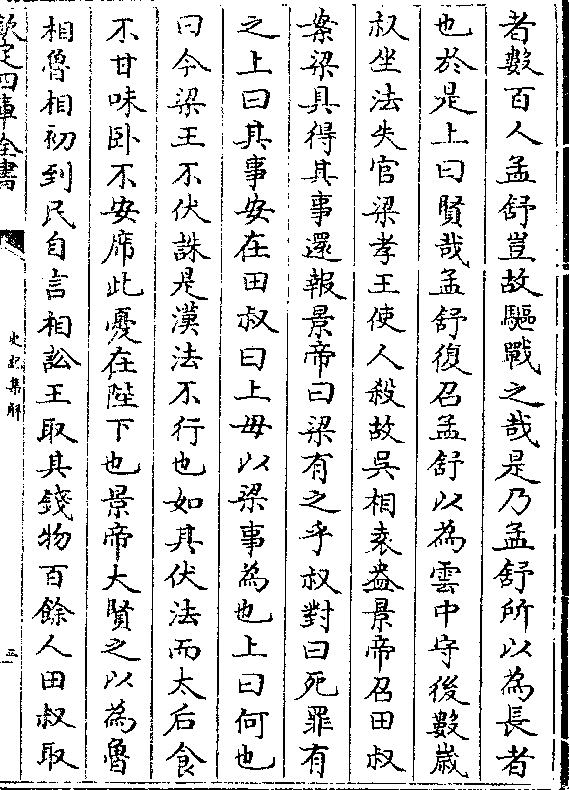 者數百人孟舒豈故驅戰之哉是乃孟舒所以為長者
也於是上曰賢哉孟舒復召孟舒以為雲中守後數歲
叔坐法失官梁孝王使人殺故吳相袁盎景帝召田叔
案梁具得其事還報景帝曰梁有之乎叔對曰死罪有
之上曰其事安在田叔曰上毋以梁事為也上曰何也
曰今梁王不伏誅是漢法不行也如其伏法而太后食
不甘味卧不安席此憂在陛下也景帝大賢之以為魯
相魯相初到民自言相訟王取其錢物百餘人田叔取
欽定四庫全書
史記集解
三